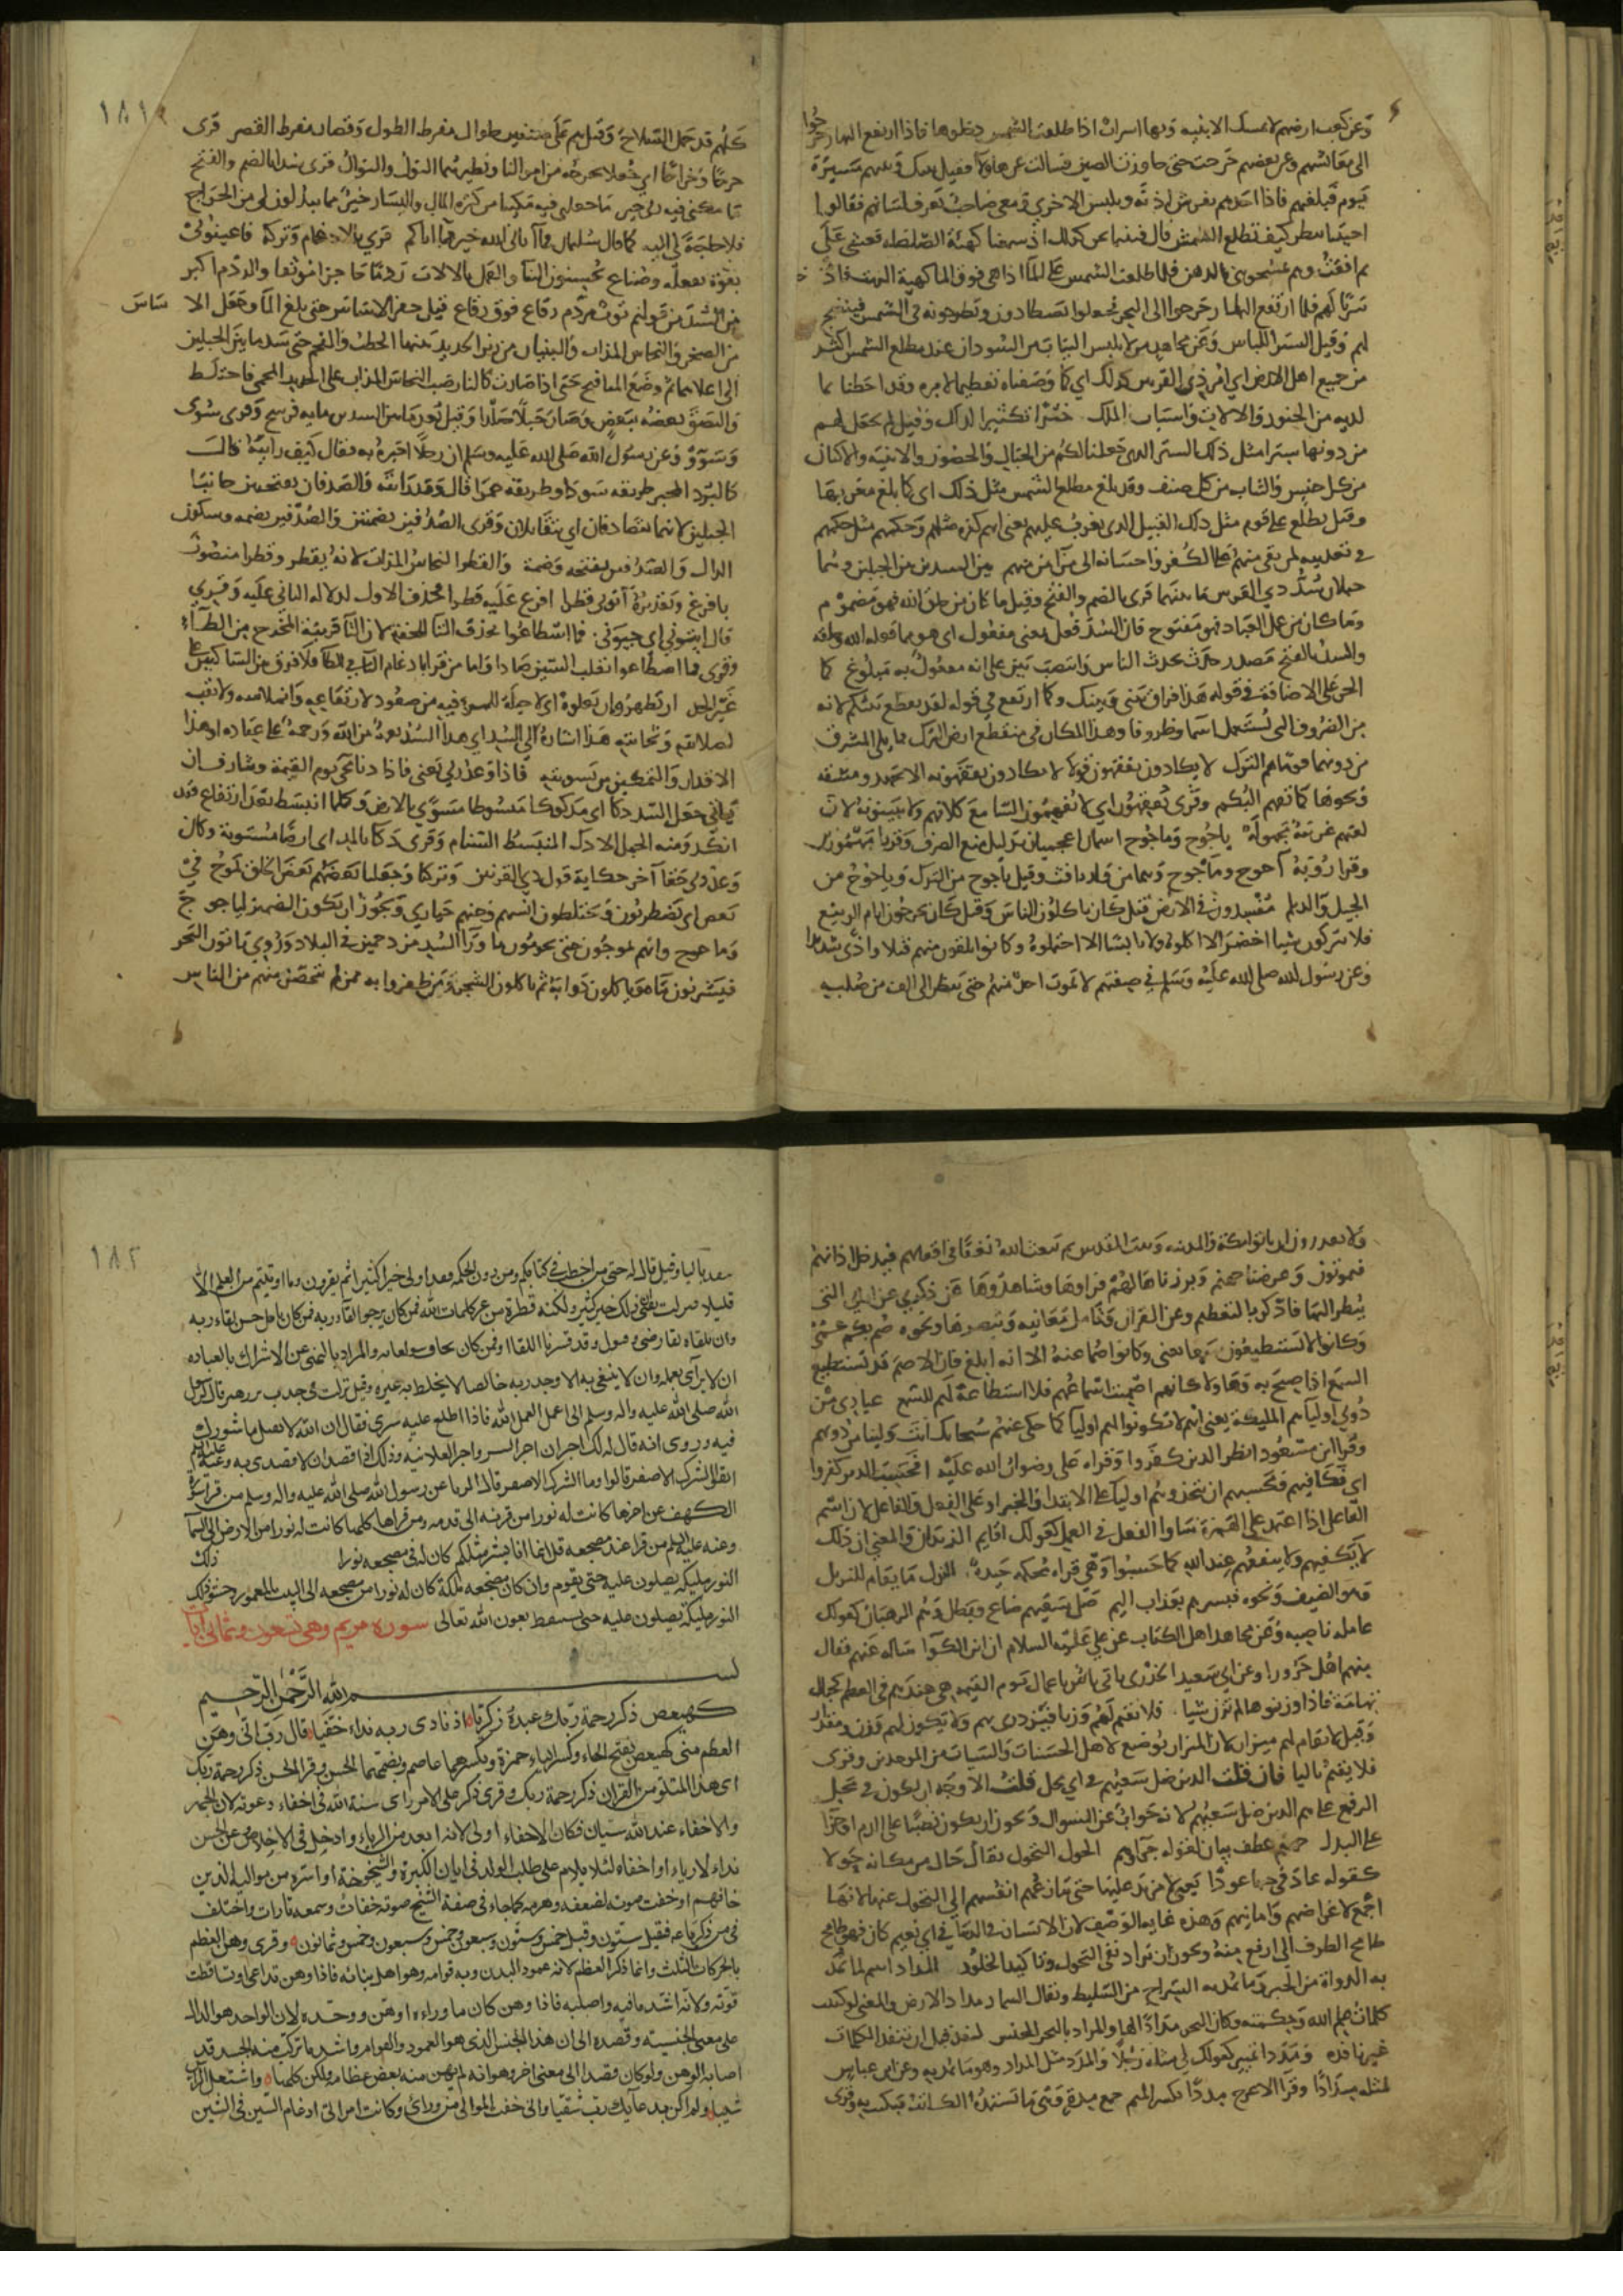 وعن كعب ارضهم لا تمسك الابنيه وبها اسراب اذا طلعت الشمس دخلوها فاذا ارتفع النهار خرجوا
الى معائشهم وعن بعضهم خرجت حتى جاوزت الصين فسالت عن هاولا فقيل بينك وبينهم مسيرة
يوم وليله فبلغتهم فاذا احدهم يفرش اذنه ويلبس الاخرى ومعي صاحب يعرف لسانهم فقالوا
جئتنا تنظر كيف تطلع الشمس قال فبينما نحن كذلك اذ سمعنا كهيئة الصلصله فغشي علي
ثم افقت وهم يمسحونني بالدهن فلما طلعت الشمس على الماء اذا هي فوق الماء كهية الزيت فادخلونا
سربا لهم فلما ارتفع النهار خرجوا الى البحر فجعلوا يصطادون السمك ويطرحونه في الشمس فينضج
لهم وقيل الستر اللباس وعن مجاهد من لا يلبس الثياب من السودان عند مطلع الشمس اكثر
من جميع اهل الارض اي امر ذي القرنين كذلك اي كما وصفناه تعظيما لامره وقد احطنا بما
لديه من الجنود والالات واسباب الملك خبرا تكثيرا لذلك وقيل لم نجعل لهم
من دونها سترا مثل ذلك الستر الذي جعلنا لكم من الجبال والحصون والابنيه والاكنان
من كل جنس والثياب من كل صنف وقيل بلغ مطلع الشمس مثل ذلك اي كما بلغ مغربها
وقيل تطلع على قوم مثل ذلك القبيل الذي تغرب عليهم يعني انهم كفره مثلهم وحكمهم مثل حكمهم
في تعذيبه لمن بقي منهم على الكفر واحسانه الى من امن منهم بين السدين بين الجبلين وهما
جبلان سد ذي القرنين ما بينهما قرى بالضم والفتح وقيل ما كان من خلق الله فهو مضموم
وما كان من عمل العباد فهو مفتوح لان السد فعل بمعنى مفعول اي هو مما فعله الله وخلقه
والسد بالفتح مصدر حدث يحدثه الناس وانتصب بين على انه مفعول به مبلوغ كما
انجر على الاضافة في قوله هذا فراق بيني وبينك وكما ارتفع في قوله لقد تقطع بينكم لانه
من الظروف التي تستعمل اسما وظروفا وهذا المكان في منقطع ارض الترك مما يلي المشرق
من دونهما قوما هم الترك لا يكادون يفقهون قولا لا يكادون يفقهونه الا بجهد ومشقه
ونحوها كما تفهم البكم وقرى يفقهون اي لا يفهمون السامع كلامهم ولا يبينونه لان
لغتهم غريبة مجهولة ياجوج وماجوج اسمان اعجميان بدليل منع الصرف وقريا مهموزين
وقرا رؤبة آجوج وماجوج وهما من ولد يافث وقيل ياجوج من الترك وماجوج من
الجيل والديلم مفسدون في الارض قيل كانوا ياكلون الناس وقيل كانوا يخرجون ايام الربيع
فلا يتركون شيا اخضر الا اكلوه ولا يابسا الا احتملوه وكانوا يلقون منهم قتلا واذى شديدا
وعن رسول الله صلى الله عليه وسلم في صفتهم لا يموت احد منهم حتى ينظر الى الف من صلبه
١٨١
كلهم قد حمل السلاح وقيل هم على صنفين طوال مفرط الطول وقصار مفرط القصر قرى
خرجا وخراجا اي جعلا نخرجه من اموالنا ونظيرهما النول والنوال وقرى سدا بالضم والفتح
ما مكني فيه ربي خير ما جعلني فيه مكينا من كثره المال واليسار خير مما تبذلون لي من الخراج
فلا حاجة لي اليه كما قال سليمان فما آتاني الله خير مما اتاكم قرى بالادغام وتركه فاعينوني
بقوة بفعله وصناع يحسنون البنا والعمل بالالات ردما حاجزا موثقا والردم اكبر
من السد من قولهم ثوب مردم رقاع فوق رقاع قيل حفر الاساس حتى بلغ الما وجعل الاساس
من الصخر والنحاس المذاب والبنيان من زبر الحديد بينهما الحطب والفحم حتى سد ما بين الجبلين
الى اعلاهما ثم وضع المنافيخ حتى اذا صارت كالنار صب النحاس المذاب على الحديد المحمى فاختلط
والتصق بعضه ببعض وصار جبلا صلدا وقيل بعد ما بين السدين مايه فرسخ وقرى سوى
وسووى وعن رسول الله صلى الله عليه وسلم ان رجلا اخبره به فقال كيف رايته قال
كالبرد المحبر طريقه سودا وطريقه حمرا قال وقد رايته والصدفان بفتحتين جانبا
الجبلين لانهما يتصادفان اي يتقابلان وقرى الصدفين بضمتين والصدفين بضمه وسكون
الدال والصدفين بفتحه وضمة والقطر النحاس المذاب لانه يقطر وقطرا منصوب
بافرغ وتقديره آتوني قطرا افرغ عليه قطرا فحذف الاول لدلاله الثاني عليه وقرى
قال ايتوني اي جيوني فما اسطاعوا بحذف التا للخفة لان التا قريبة المخرج من الطاء
وقرى فما اصطاعوا بقلب السين صادا واما من قرا بادغام التا في الطا فملاق بين الساكنين على
غير الحد ان يظهروه ان يعلوه اي لا حيلة لهم فيه من صعود لارتفاعه وانملاسه ولا نقب
لصلابته وثخانته هذا اشارة الى السد اي هذا السد نعمة من الله ورحمة على عباده او هذا
الاقدار والتمكين من تسويته فاذا جا وعد ربي يعني فاذا دنا مجى يوم القيمة وشارف ان
ياتي جعل السد دكا اي مدكوكا مبسوطا مسوى بالارض وكلما انبسط بعد ارتفاع فقد
اندك ومنه الجمل الادك المنبسط السنام وقرى دكا بالمد اي ارضا مستوية وكان
وعد ربي حقا آخر حكاية قول ذي القرنين وتركنا وجعلنا بعضهم بعض الخلق يموج في
بعض اي يضطربون ويختلطون انسهم وجنهم حيارى ويجوز ان يكون الضمير لياجوج
وماجوج وانهم يموجون حين يخرجون مما ورا السد مزدحمين في البلاد وروي ياتون البحر
فيشربون ماه وياكلون دوابه ثم ياكلون الشجر ومن ظفروا به ممن لم يتحصن منهم من الناس
ولا يقدرون ان ياتوا مكة والمدينه وبيت المقدس ثم يبعث الله نغفا في اقفايهم فيدخل اذانهم
فيموتون وعرضنا جهنم وبرزناها لهم فراوها وشاهدوها عن ذكري عن اياتي التي
ينظر اليها فاذكر بالتعظيم وعن القران وتامل معانيه وتبصرها ونحوه صم بكم عمي
وكانوا لا يستطيعون سمعا يعني وكانوا صما عنه الا انه ابلغ لان الاصم قد يستطيع
السمع اذا صيح به وهاولا كانهم اصميت اسماعهم فلا استطاعة لهم للسمع عبادي من
دوني اوليا هم المليكة يعني انهم لا يكونوا لهم اوليا كما حكى عنهم سبحانك انت ولينا من دونهم
وقرا ابن مسعود افظن الذين كفروا وقراه علي رضوان الله عليه افحسب الذين كفروا
اي افكافيهم فحسبهم ان يتخذوهم اوليا على الابتدا والخبر او على الفعل والفاعل لان اسم
الفاعل اذا اعتمد على الهمزة ساوا الفعل في العمل كقولك اقايم الزيدان والمعنى ان ذلك
لا يكفيهم ولا ينفعهم عند الله كما حسبوا وهي قراه محكمه جيدة النزل ما يقام للنزيل
وهو الضيف ونحوه فبشرهم بعذاب اليم ضل سعيهم ضاع وبطل وهم الرهبان كقوله
عامله ناصبه وعن مجاهد اهل الكتاب وعن علي عليه السلام ان ابن الكوا ساله عنهم فقال
منهم اهل حرورا وعن ابي سعيد الخدري ياتي ناس باعمال يوم القيمه هي عندهم في العظم كجبال
تهامة فاذا وزنوها لم تزن شيا فلا نقيم لهم وزنا فنزدري بهم ولا يكون لهم وزن ومقدار
وقيل لا نقام لهم ميزان لان الميزان يوضع لاهل الحسنات والسيات من الموحدين وقرى
فلا يقيم باليا فان قلت الذين ضل سعيهم في اي محل قلت الاوجه ان يكون في محل
الرفع على هم الذين ضل سعيهم لانه جواب عن السوال ويجوز ان يكون نصبا على الذم او جرا
على البدل جهنم عطف بيان لقوله جزاوهم الحول التحول يقال حال من مكانه حولا
كقوله عاد في حبها عودا يعني لا مزيد عليها حتى تنازعهم انفسهم الى التحول عنها لانها
اجمع لاغراضهم وامانيهم وهذه غايه الوصف لان الانسان في الدنيا في اي نعيم كان فهو طامح
طامح الطرف الى ارفع منه ويجوز ان يراد نفى التحول وتاكيد الخلود المداد اسم لما تمد
به الدواة من الحبر وما يمد به السراج من السليط ويقال السماد مداد الارض والمعنى لو كتبت
كلمات علم الله وحكمته وكان البحر مدادا لها والمراد بالبحر الجنس لنفد قبل ان تنفد الكلمات
غير نافده ومددا تمييز كقولك لي مثله رجلا والمدد مثل المداد وهو ما يمد به وعن ابن عباس
لمثله مدادا وقرا الاعرج مددا بكسر الميم جمع مدة وهي ما يستمده الكاتب فيكتب به وقرى
١٨٢
ينفد باليا وقيل قال له حيى بن اخطب في كتابكم ومن يوت الحكمه فقد اوتي خيرا كثيرا ثم يقرون وما اوتيتم من العلم الا
قليلا فنزلت يعني ان ذلك خير كثير ولكنه قطرة من بحر كلمات الله فمن كان يرجوا لقاء ربه فمن كان يامل حسن لقاء ربه
وان يلقاه لقا رضى وقبول وقد فسرنا اللقا او فمن كان يخاف سو لقايه والمراد بالنهي عن الاشراك بالعباده
ان لا يرآى بعمله وان لا يبتغي به الا وجه ربه خالصا لا يخلط به غيره وقيل نزلت في جندب بن زهير قال لرسول
الله صلى الله عليه واله وسلم اني اعمل العمل لله فاذا اطلع عليه سرني فقال ان الله لا يقبل ما شورك
فيه وروى انه قال له لك اجران اجر السر واجر العلانيه وذلك اذا قصد ان لا يقتدى به وعنه عليه السلم
اتقوا الشرك الاصغر قالوا وما الشرك الاصغر قال الريا عن رسول الله صلى الله عليه واله وسلم من قرا سورة
الكهف من اخرها كانت له نورا من قرنه الى قدمه ومن قراها كلها كانت له نورا من الارض الى السما
وعنه عليه السلم من قرا عند مضجعه قل انما انا بشر مثلكم كان له في مضجعه نورا ذلك
النور مليكة يصلون عليه حتى يقوم وان كان مضجعه بمكة كان له نورا من مضجعه الى البيت المعمور وحشو ذلك
النور مليكة يصلون عليه حتى يستيقظ بعون الله تعالى سورة مريم وهي تسعون وثماني ايات
بسم الله الرحمن الرحيم
كهيعص ذكر رحمة ربك عبدة زكريا اذ نادى ربه نداء خفيا قال رب انى وهن
العظم منى كهيعص بفتح الهاء وكسر الياء حمزة وبكسرهما عاصم وبضمهما الحسن وقرا الحسن ذكر رحمة ربك
اى هذا المتلو من القران ذكر رحمة ربك وقرى ذكر على الامر راى سنة الله فى اخفاء دعوته لان الجهر
والاخفاء عند الله سيان فكان الاخفاء اولى لانه ابعد من الرياء وادخل فى الاخلاص وعن الحسن
نداء لا رياء او اخفاه لئلا يلام على طلب الولد فى ابان الكبرة والشيخوخة او اسره من مواليه الذين
خافهم او خفت صوته لضعفه وهرمه كما جاء فى صفة الشيخ صوته خفات وسمعه تارات واختلف
فى سن زكريا عه فقيل ستون وقيل خمس وستون وسبعون وخمس وسبعون وخمس وثمانون وقرى وهن العظم
بالحركات الثلث وانما ذكر العظم لانه عمود البدن وبه قوامه وهو اصل بنائه فاذا وهن تداعى وتساقطت
قوته ولانه اشد ما فيه واصلبه فاذا وهن كان ما وراءه اوهن ووحده لان الواحد هو الدال
على معنى الجنسية وقصده الى ان هذا الجنس الذى هو العمود والقوام واشد ما تركب منه الجسد قد
اصابه الوهن ولو كان قصدا الى معنى اخر وهو انه لم يهن منه بعض عظامه ولكن كلها واشتعل الراس
شيبا ولم اكن بدعائك رب شقيا وانى خفت الموالى من ورائى وكانت امراتى ادغام السين فى الشين